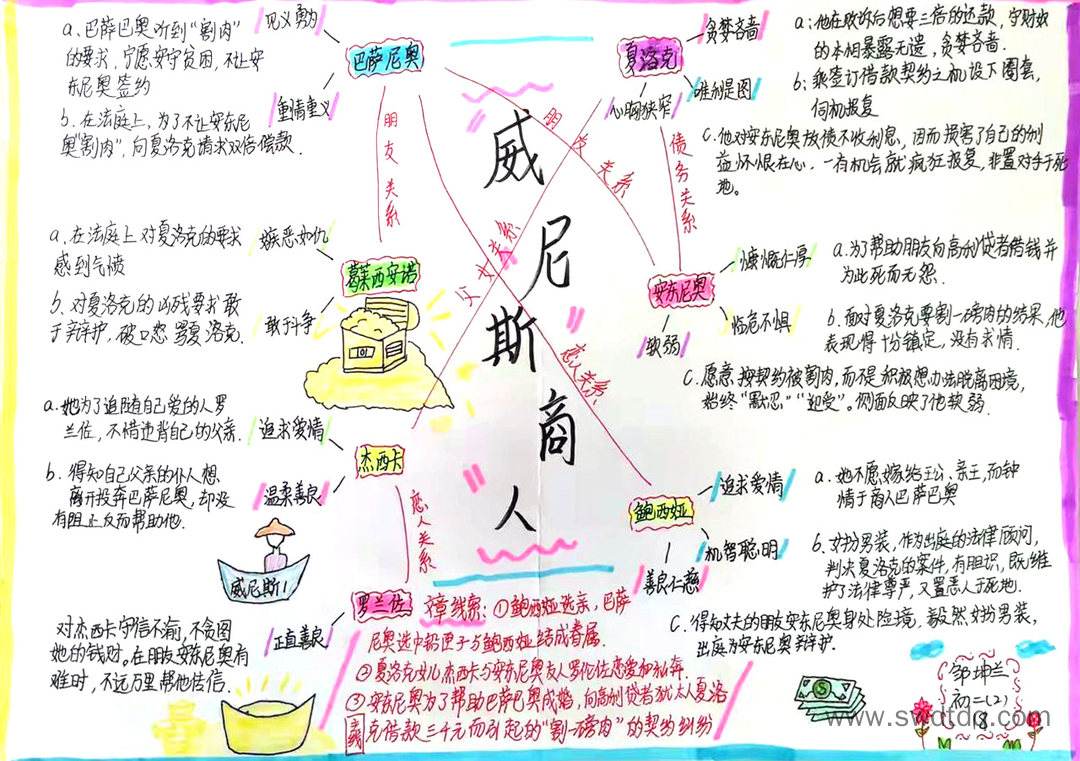 威尼斯商人
巴萨尼奥
见义勇为
a、巴萨巴奥听到“割肉”
的要求，宁愿安守贫困，不让安
东尼奥签约
重情重义
b、在法庭上，为了不让安东尼
奥“割肉”，向夏洛克请求双倍偿款.
朋友关系
葛莱西安诺
嫉恶如仇
a、在法庭上对夏洛克的要求
感到气愤
敢于斗争
b、对夏洛克的凶残要求敢
于辩护，破口怒骂夏洛克.
杰西卡
追求爱情
a、她为了追随自己爱的人罗
兰佐，不惜违背自己的父亲.
温柔善良
b、得知自己父亲的仆人想
离开投奔巴萨尼奥，却没
有阻止反而帮助他.
恋人关系
威尼斯！
罗兰佐
正直善良
对杰西卡守信不渝，不贪图
她的钱财。在朋友安东尼奥有
难时，不远万里帮他传信.
夏洛克
贪婪吝啬
a：他在败诉后想要三倍的还款，守财奴
的本相暴露无遗，贪婪吝啬.
唯利是图
b；乘签订借款契约之机设下圈套，
伺机报复
心胸狭窄
c、他对安东尼奥放债不收利息，因而损害了自己的利
益怀恨在心．一有机会就疯狂报复，非置对手于死
地。
朋友关系
债务关系
父女关系
恋人关系
安东尼奥
慷慨仁厚
a.为了帮助朋友向高利贷者借钱并
为此死而无怨.
临危不惧
b.面对夏洛克要割一磅肉的结果，他
表现得十分镇定，没有求情.
软弱
c.愿意按契约被割肉，而不是积极想办法脱离困境，
始终“默忍”“迎受”。侧面反映了他软弱.
鲍西娅
追求爱情
a、她不愿嫁给王公、亲王，而钟
情于商人巴萨巴奥
机智聪明
b、女扮男装，作为出庭的法律顾问，
判决夏洛克的案件，有胆识，既维
护了法律尊严，又置恶人于死地.
善良仁慈
c、得知丈夫的朋友安东尼奥身处险境，毅然女扮男装，
出庭为安东尼奥辩护.
文章线索：①鲍西娅选亲，巴萨
尼奥选中铅匣子与鲍西娅结成眷属.
②夏洛克女儿杰西卡与安东尼奥友人罗伦佐恋爱和私奔.
③安东尼奥为了帮助巴萨巴奥成婚，向高利贷者犹太人夏洛
主线
克借款三千元而引起的“割一磅肉”的契约纠纷
邹坤兰
初二(2)
18.